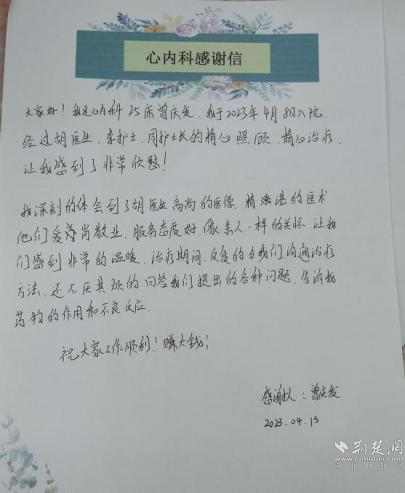 心内科感谢信
大家好！我是心内科25床曾庆发，我于2023年4月8日入院
经过胡医生、李护士、周护士长的精心照顾，精心治疗，
让我感到了非常欣慰！
我深刻的体会到了胡医生高尚的医德，精湛的医术
他们爱岗敬业，服务态度好，像亲人一样的关怀，让我
们感到非常的温暖，治疗期间，反复的与我们沟通治疗
方法，还不厌其烦的回答我们提出的各种问题，告诉我
药物的作用和不良反应。
祝大家工作顺利！赚大钱！
感谢人：曾庆发
2023.04.13
荆楚网
www.cnhubei.com